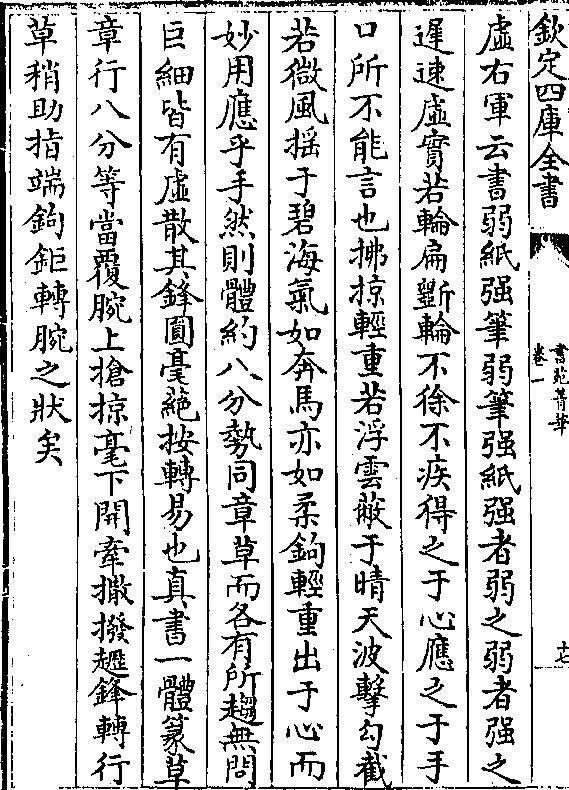 欽定四庫全書
書苑菁華
卷一
十七
虛右軍云書弱紙强筆弱筆强紙强者弱之弱者强之
遲速虛實若輪扁斵輪不徐不疾得之于心應之于手
口所不能言也拂掠輕重若浮雲蔽于晴天波擊勾截
若微風揺于碧海氣如奔馬亦如柔鉤輕重出于心而
妙用應乎手然則體約八分勢同章草而各有所趨無問
巨細皆有虛散其鋒圓毫絶按轉易也真書一體篆草
章行八分等當覆腕上搶掠毫下開牽撒撥趯鋒轉行
草稍助指端鉤鉅轉腕之狀矣